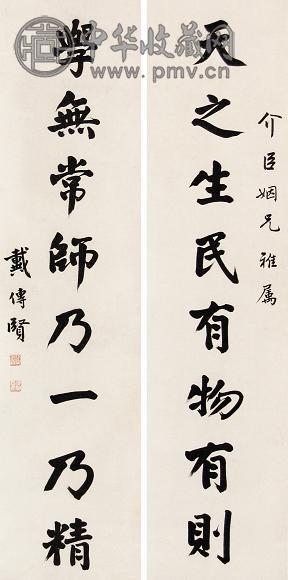 中华收藏网
www.pmv.cn
介臣姻兄雅属
天之生民有物有則
學無常師乃一乃精
戴傳賢